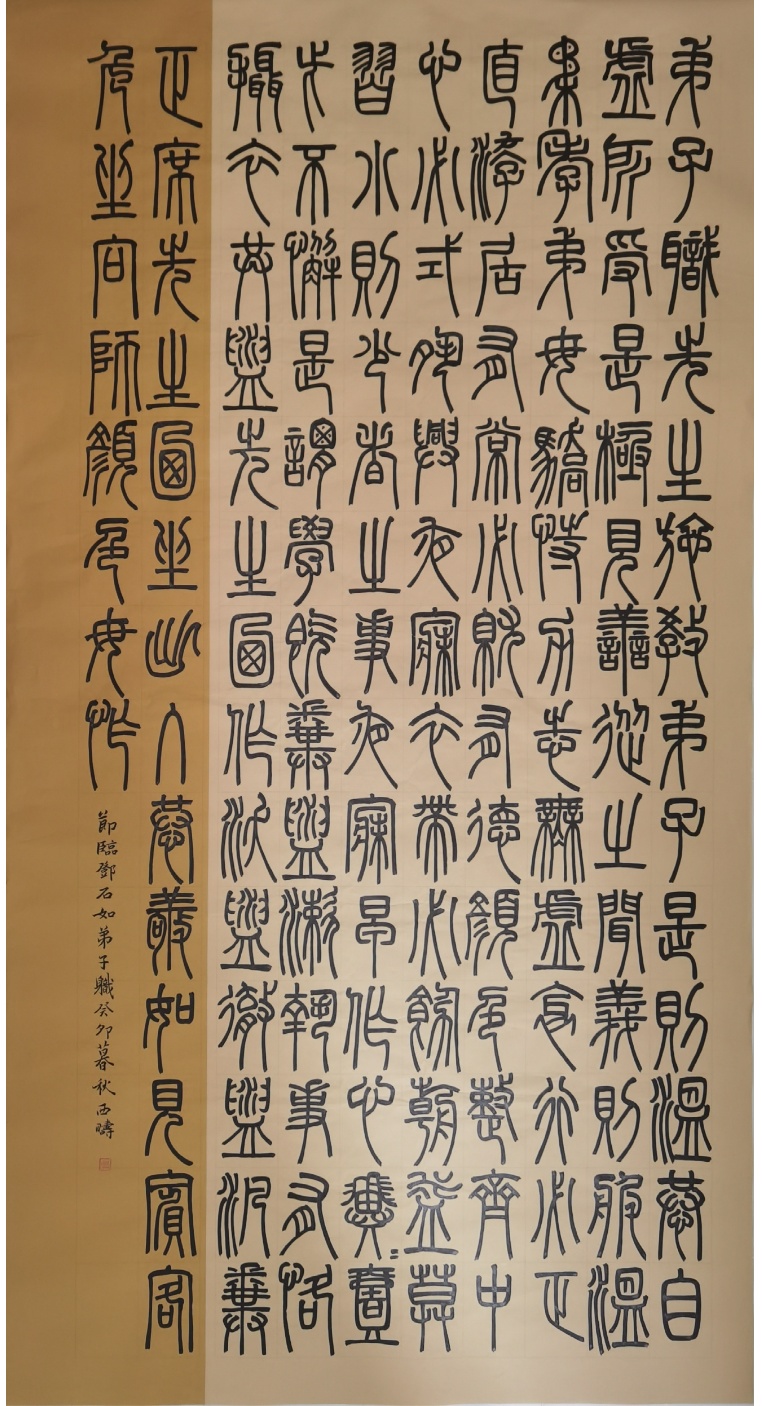 弟子職先生施教弟子是則溫恭自
虛所受是極見善從之聞義則服溫
柔孝弟毋驕恃力志無虛衺行必正
直游居有常必就有德顏色整齊中
心必式夙興夜寐衣帶必飾朝益莫
習小則少者之事夜寐早作心翼〻壹
此不懈是謂學既糞盥漱執事有恪
攝衣共盥先生廼作沃盥徹盥汎糞
正席先生廼坐出入恭敬如見賓客
危坐向師顏色毋怍
節臨鄧石如弟子職癸卯暮秋西疇